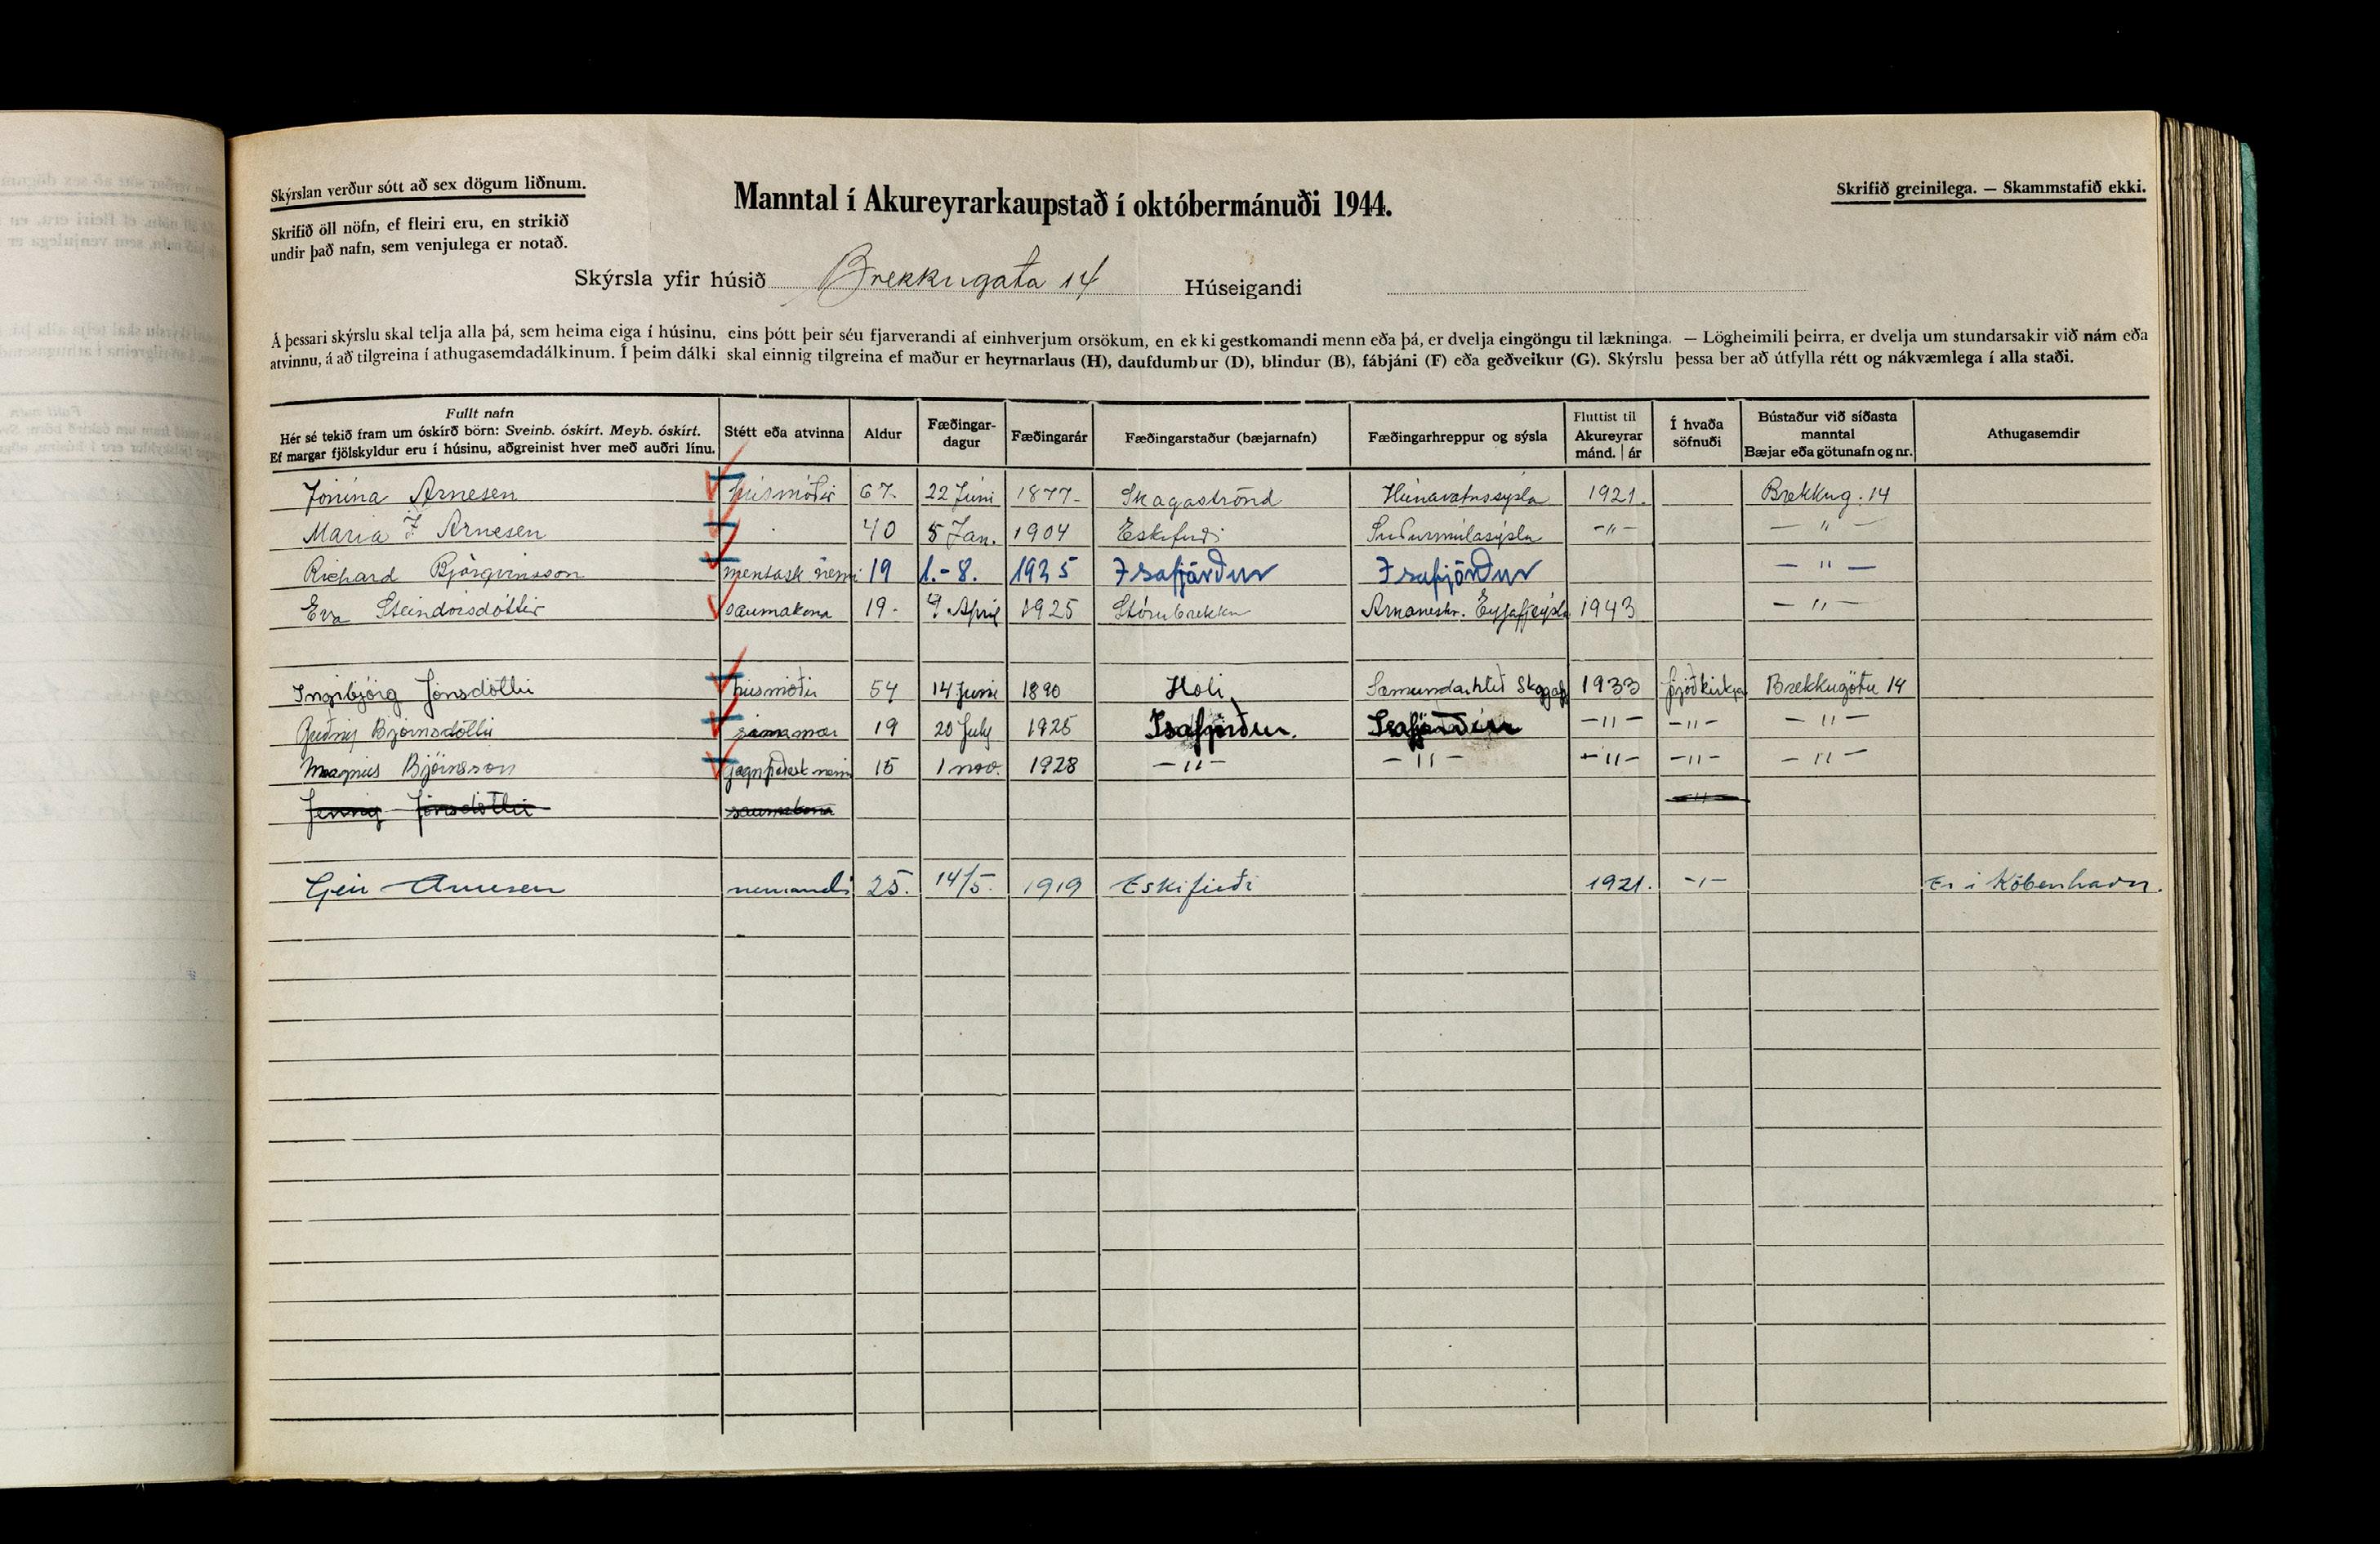 Skýrslan verður sótt að sex dögum liðnum.
Skrifið öll nöfn, ef fleiri eru, en strikið
undir það nafn, sem venjulega er notað.
Manntal í Akureyrarkaupstað í októbermánuði 1944.
Skrifið greinilega. — Skammstafið ekki.
Skýrsla yfir húsið Brekkugata 14 Húseigandi
Á þessari skýrslu skal telja alla þá, sem heima eiga í húsinu, eins þótt þeir séu fjarverandi af einhverjum orsökum, en ekki gestkomandi menn eða þá, er dvelja eingöngu til lækninga. — Lögheimili þeirra, er dvelja um stundarsakir við nám eða
atvinnu, á að tilgreina í athugasemdadálkinum. Í þeim dálki skal einnig tilgreina ef maður er heyrnarlaus (H), daufdumbur (D), blindur (B), fábjáni (F) eða geðveikur (G). Skýrslu þessa ber að útfylla rétt og nákvæmlega í alla staði.
Fullt nafn
Hér sé tekið fram um óskírð börn: Sveinb. óskírt. Meyb. óskírt.
Ef margar fjölskyldur eru í húsinu, aðgreinist hver með auðri línu.
Stétt eða atvinna
Aldur
Fæðingar-
dagur
Fæðingarár
Fæðingarstaður (bæjarnafn)
Fæðingarhreppur og sýsla
Fluttist til
Akureyrar
mánd. | ár
Í hvaða
söfnuði
Bústaður við síðasta
manntal
Bæjar eða götunafn og nr.
Athugasemdir
Jónína Arnesen húsmóðir 67. 22 Júni 1877- Skagaströnd Húnavatnssýsla 1921. Brekkug. 14
Maria F Arnesen 40 5 Jan. 1904 Eskifirði Suðurmúlasýsla -"- - " -
Richard Björgvinsson mentask nemi 19 1.-8. 1925 Isafjörður Isafjörður - " -
Eva Steindórsdóttir saumakona 19- 9 April 1925 Stórubrekku Arnaneshr. Eyjafjsýsla 1943 - " -
Ingibjörg Jónsdóttir húsmóðir 54 14 Juni 1890 Hóli Sæmundarhlíð Skagafj 1933 þjóðkirkja Brekkugötu 14
Guðný Björnsdóttir símamær 19 20 July 1925 Isafjörður. Isafjörður -"- -"- - " -
Magnús Björnsson gagnfræðask nemi 15 1 nov. 1928 -"- - " - -"- -"- - " -
Jenný Jónsdóttir saumakona -"-
Geir Arnesen nemandi 25. 14/5. 1919 Eskifirði 1921. -"- Er i Köbenhavn.